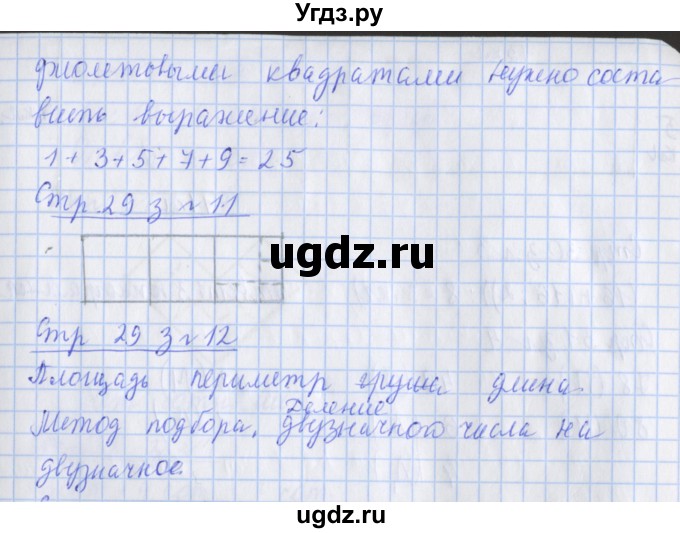 Угдз.ру
фиолетовыми квадратами нужно соста-
вить выражение:
1 + 3 + 5 + 7 + 9 = 25
Стр 29 з № 11
ugdz.ru
Стр 29 з № 12
Площадь периметр группа длина.
Деление
Метод подбора. двузначного числа на
двузначное.
ugdz.ru